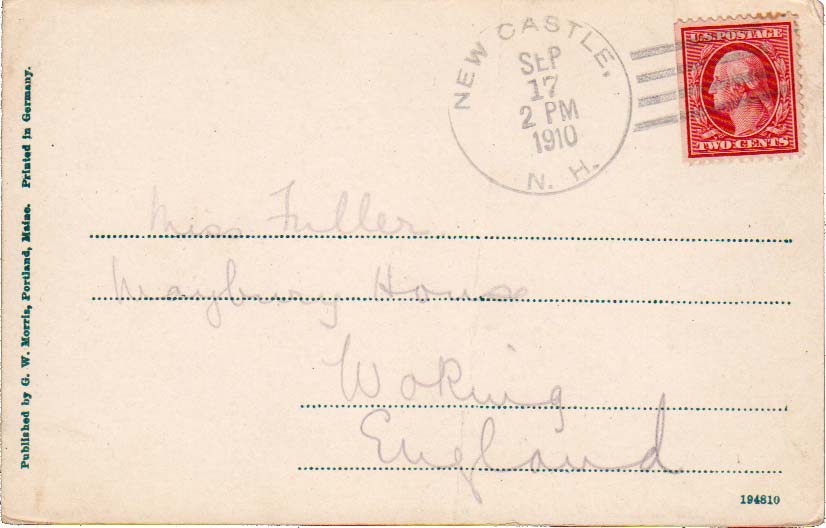 NEW CASTLE,
SEP
17
2 PM
1910
N. H.
U.S. POSTAGE
TWO CENTS
Miss Fuller
Maybury House
Woking
England
Published by G. W. Morris, Portland, Maine. Printed in Germany.
194810